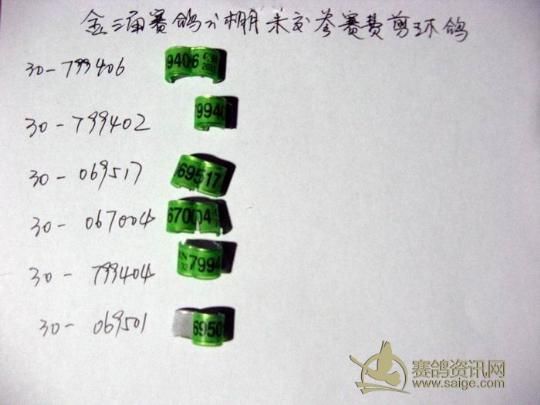 金三角赛鸽公棚未交参赛费剪环鸽
30-799406
9406
30-799402
79940
30-069517
69517
30-067004
67004
30-799404
7994
30-069501
6950
赛鸽资讯网
www.saige.com